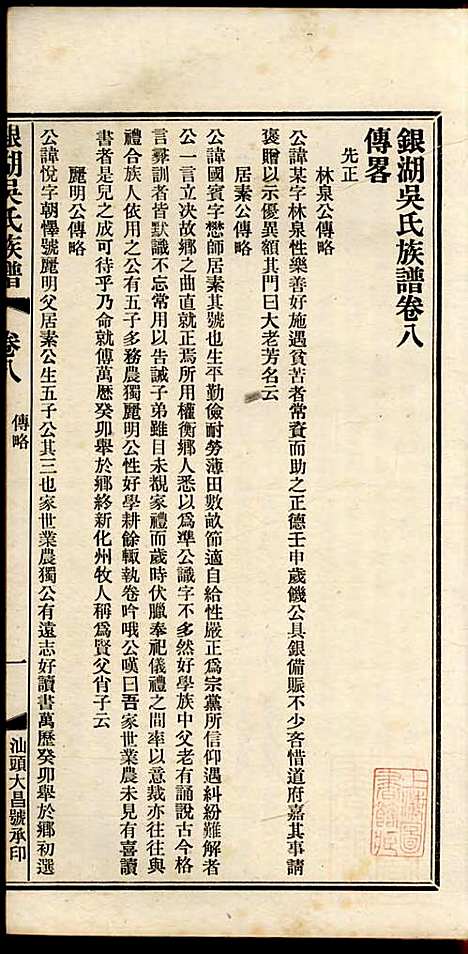 銀湖吳氏族譜卷八
傳畧
先正
林泉公傳略
公諱某字林泉性樂善好施遇貧苦者常賚而助之正德壬申歲饑公具銀備賑不少吝惜道府嘉其事請
褒贈以示優異額其門曰大老芳名云
居素公傳略
公諱國賓字懋師居素其號也生平勤儉耐勞薄田數畝節適自給性嚴正為宗黨所信仰遇糾紛難解者
公一言立決故鄉之曲直就正焉所用權衡鄉人悉以為準公識字不多然好學族中父老有誦說古今格
言彞訓者皆默識不忘常用以告誡子弟雖目未覩家禮而歲時伏臘奉祀儀禮之間率以意裁亦往往與
禮合族人依用之公有五子多務農獨麗明公性好學耕餘輒執卷吟哦公嘆曰吾家世業農未見有喜讀
書者是兒之成可待乎乃命就傅萬歷癸卯舉於鄉終新化州牧人稱為賢父肖子云
麗明公傳略
公諱悅字朝懌號麗明父居素公生五子公其三也家世業農獨公有遠志好讀書萬歷癸卯舉於鄉初選
銀湖吳氏族譜
卷八
傳略
一
汕頭大昌號承印
上海圖
書館藏